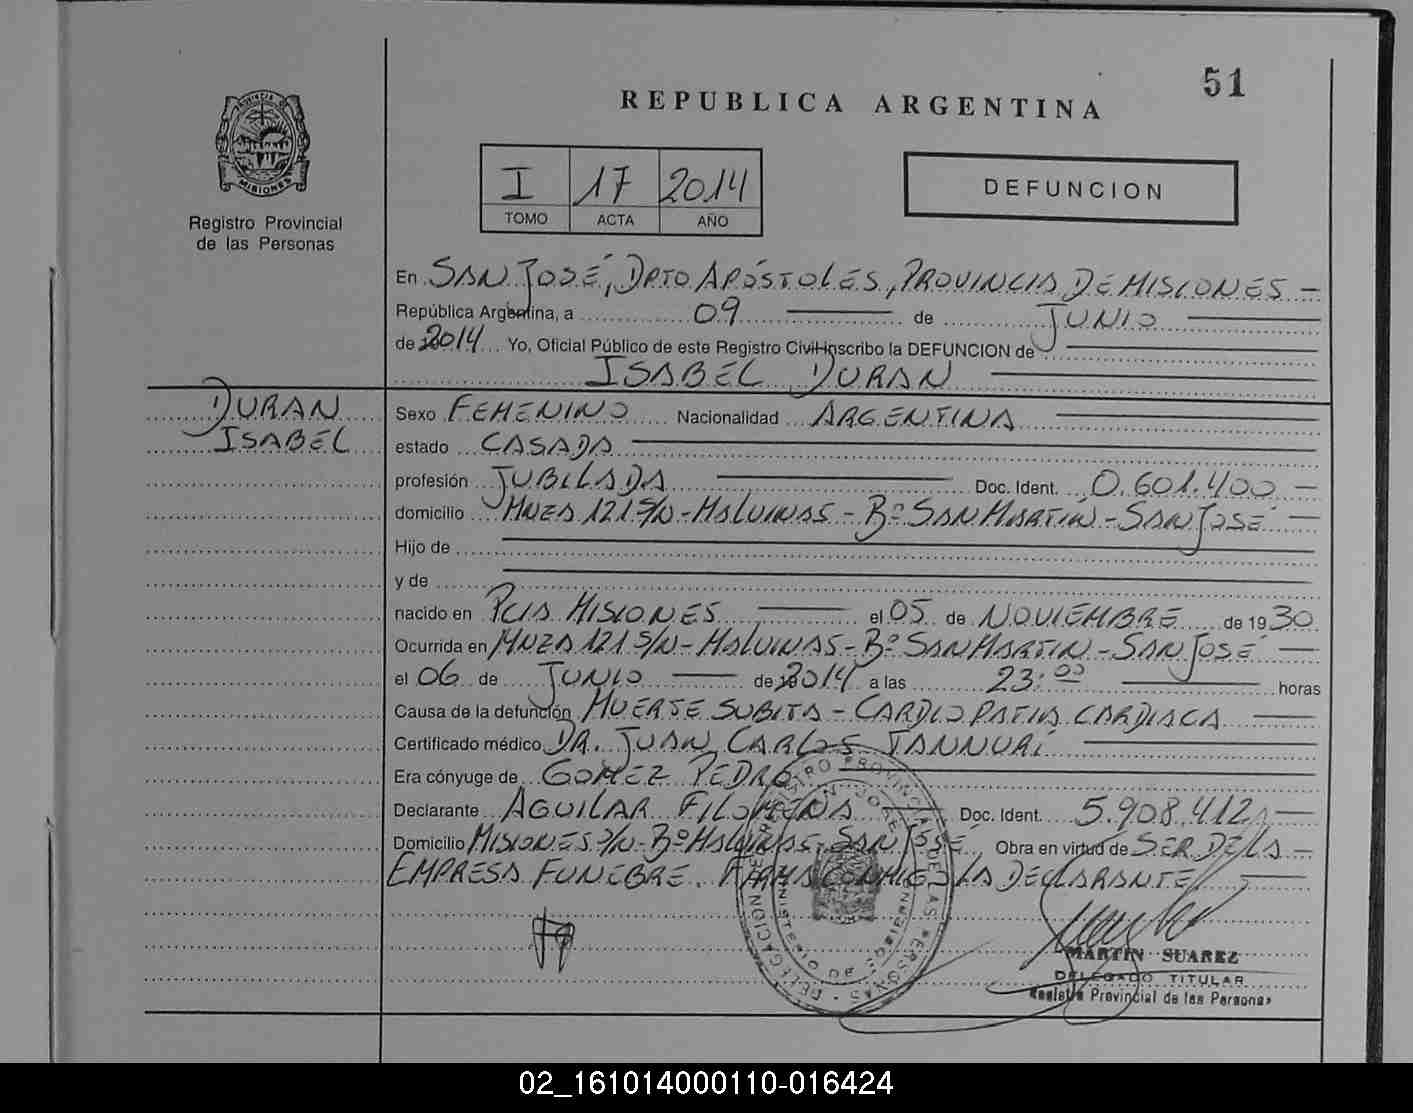 51
REPUBLICA ARGENTINA
PROVINCIA DE MISIONES
Registro Provincial
de las Personas
I 17 2014
TOMO ACTA AÑO
DEFUNCION
En SAN JOSÉ, DPTO APÓSTOLES, PROVINCIA DE MISIONES -
República Argentina, a 09 de JUNIO
de 2014 Yo, Oficial Público de este Registro Civil inscribo la DEFUNCION de
ISABEL DURAN
DURAN
ISABEL
Sexo FEMENINO Nacionalidad ARGENTINA
estado CASADA
profesión JUBILADA Doc. Ident. 0.601.400 -
domicilio MNZA 121 S/N - MALVINAS - Bº SAN MARTIN - SAN JOSÉ -
Hijo de
y de
nacido en PCIA MISIONES el 05 de NOVIEMBRE de 1930
Ocurrida en MNZA 121 S/N - MALVINAS - Bº SAN MARTIN - SAN JOSÉ -
el 06 de JUNIO de 2014 a las 23:00 horas
Causa de la defunción MUERTE SUBITA - CARDIOPATIA CARDIACA
Certificado médico DR. JUAN CARLOS TANNURI
Era cónyuge de GOMEZ PEDRO
Declarante AGUILAR FILOMENA Doc. Ident. 5.908.412 -
Domicilio MISIONES S/N - Bº MALVINAS - SAN JOSÉ Obra en virtud de SER DE LA -
EMPRESA FUNEBRE. FIRMA CONMIGO LA DECLARANTE
DELEGACION REGISTRO PROVINCIAL DE LAS PERSONAS
SAN JOSE
MINISTERIO DE GOBIERNO
MARTIN SUAREZ
DELEGADO TITULAR
Registro Provincial de las Personas
02_161014000110-016424